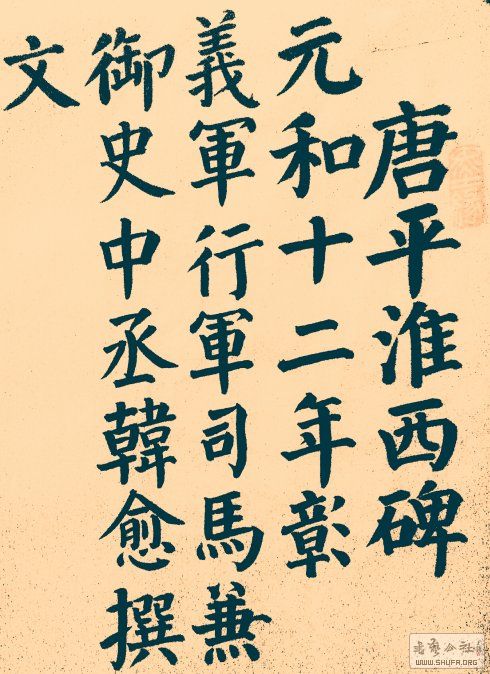 唐平淮西碑
元和十二年彰
義軍行軍司馬兼
御史中丞韓愈撰
文
WWW.SHUFA.ORG